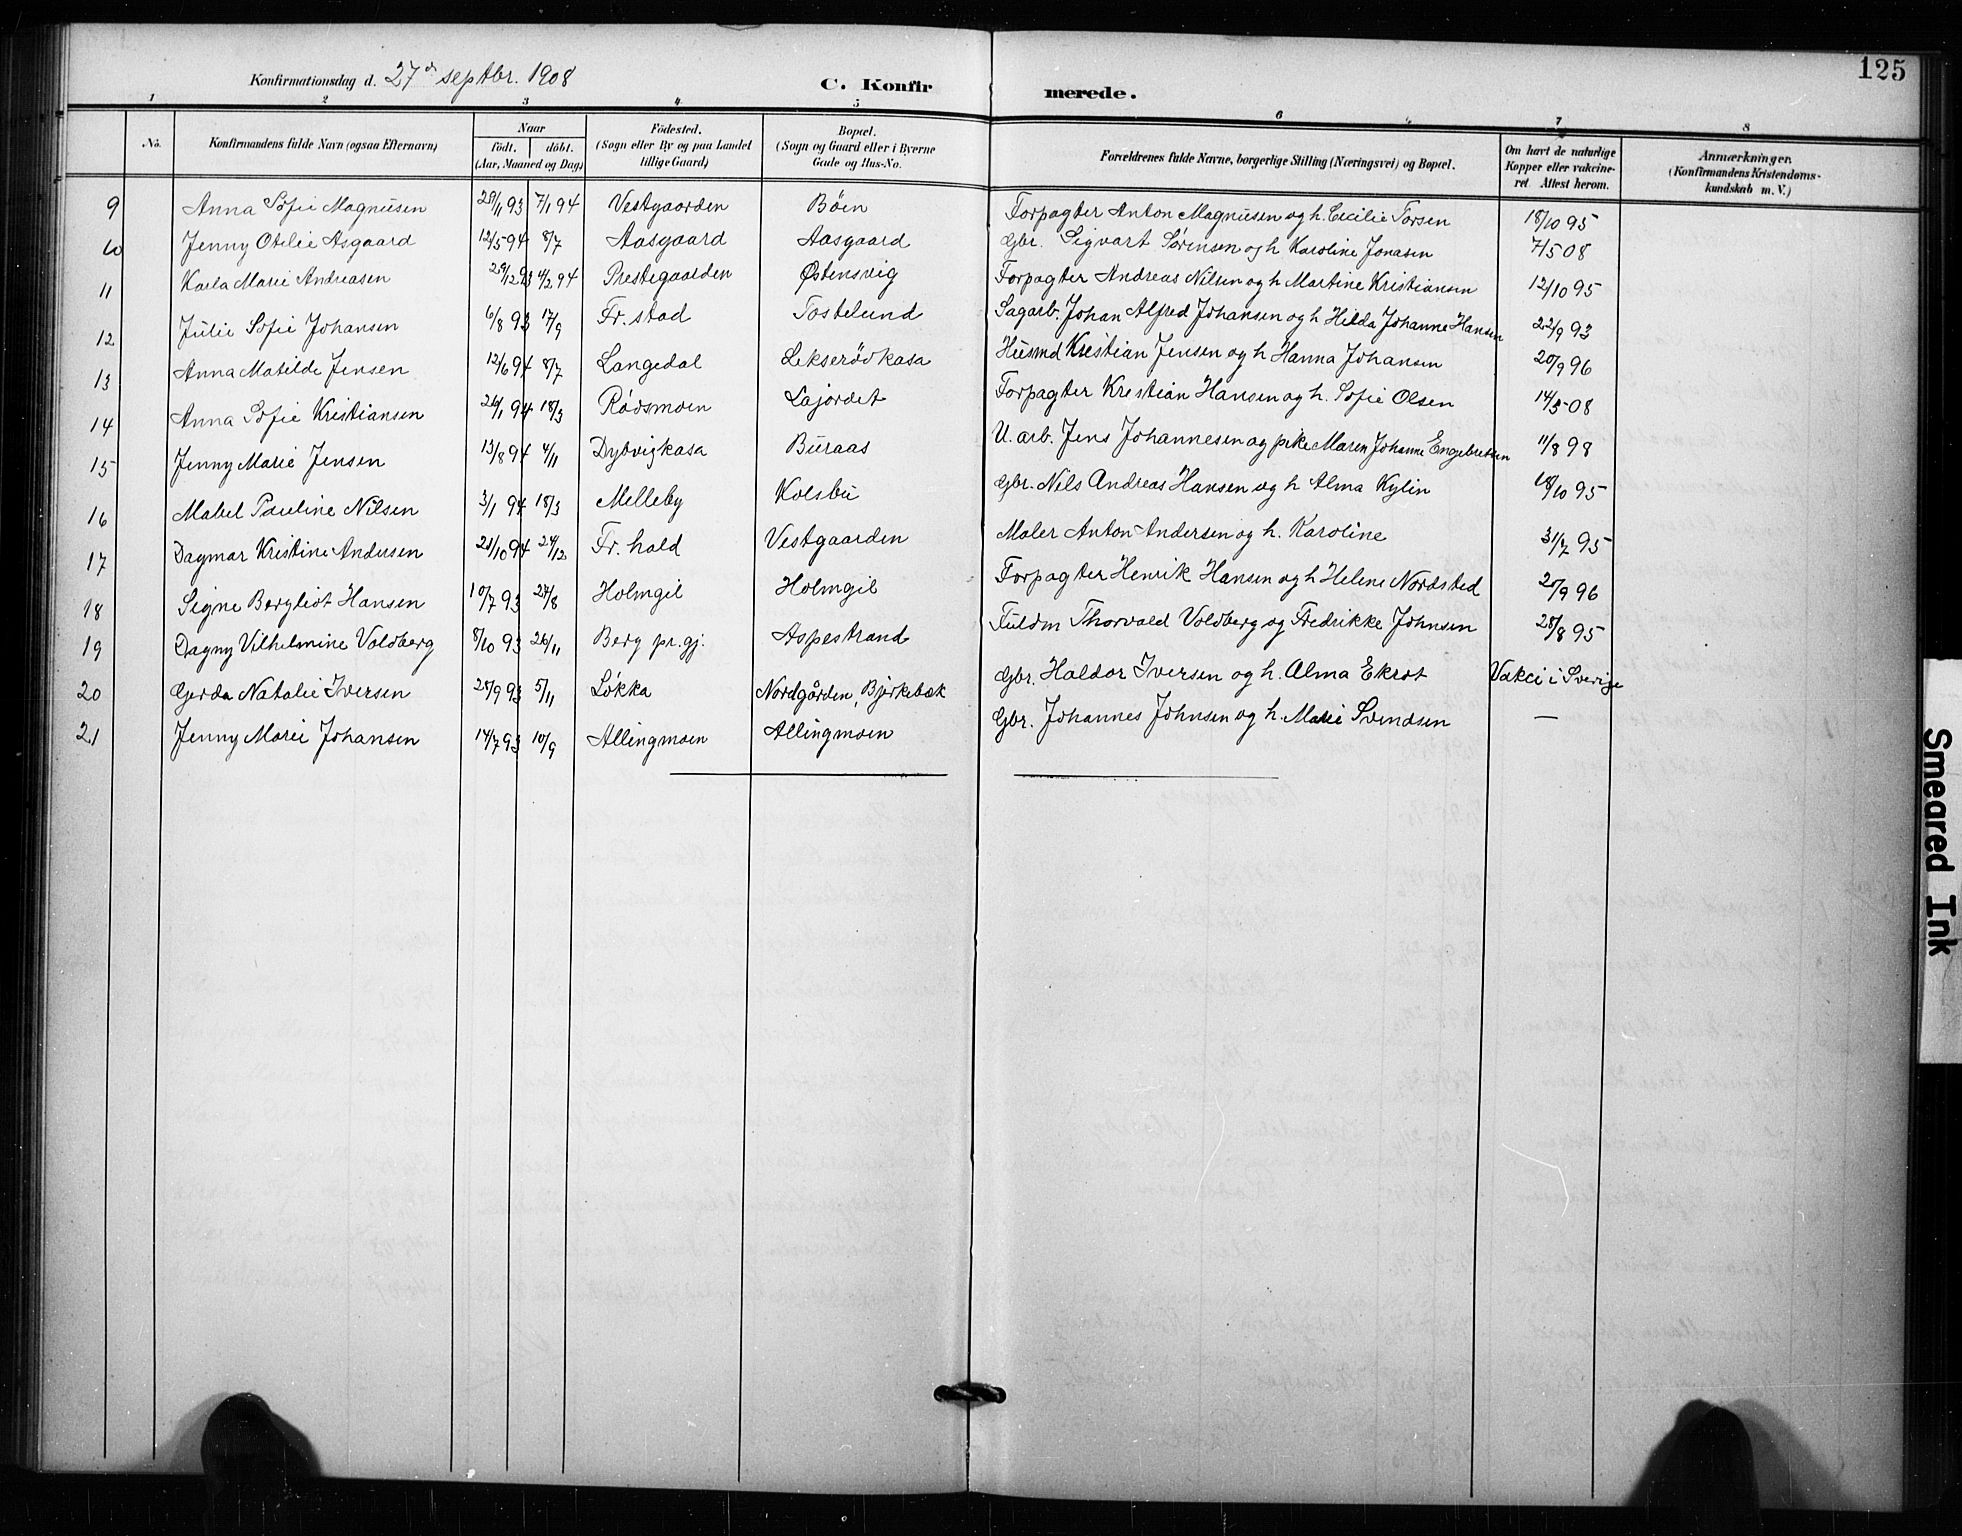 125
Konfirmationsdag d. 27de septbr. 1908 C. Konfirmerede.
1 2 3 4 5 6 7 8
No. Konfirmandens fulde Navn (ogsaa Efternavn) Naar födt. döbt. (Aar, Maaned og Dag) Födested. (Sogn eller By og paa Landet tillige Gaard) Bopæl. (Sogn og Gaard eller i Byerne Gade og Hus-No. Forældrenes fulde Navne, borgerlige Stilling (Næringsvei) og Bopæl. Om havt de naturlige Kopper eller vakcineret. Attest herom. Anmærkninger. (Konfirmandens Kristendomskundskab m. V.)
9 Anna Sofie Magnusen 29/11 93 7/1 94 Vestgaarden Böen Forpagter Anton Magnusen og h. Cecilie Torsen 18/10 95
10 Jenny Otilie Asgaard 12/5 94 8/7 Aasgaard Aasgaard Gbr. Sigvart Sørensen og h Karoline Jonasen 7/5 08
11 Karla Marie Andreasen 29/12 93 4/2 94 Prestegaarden Østensvig Forpagter Andreas Nilsen og h Martine Kristiansen 12/10 95
12 Julie Sofie Johansen 6/8 93 17/9 Fr. stad Tostelund Sagarb. Johan Alfred Johansen og h Hilda Johanne Hansen 22/9 93
13 Anna Matilde Jensen 12/6 94 8/7 Langedal Lekserødkasa Husmd Kristian Jensen og h Hanna Johansen 20/9 96
14 Anna Sofie Kristiansen 26/1 94 18/3 Rødsmoen Lajordet Forpagter Kristian Hansen og h. Sofie Olsen 14/5 08
15 Jenny Marie Jensen 13/8 94 4/11 Dybvigkasa Buraas U. arb. Jens Johannesen og pike Maren Johanne Engebretsen 11/8 98
16 Mabel Pauline Nilsen 3/1 94 18/3 Melleby Kolsbu Gbr. Nils Andreas Hansen og h Alma Kylin 18/10 95
17 Dagmar Kristine Andersen 21/10 94 24/12 Fr. hald Vestgaarden Maler Anton Andersen og h. Karoline 31/7 95
18 Signe Bergliot Hansen 10/7 93 27/8 Holmgil Holmgil Forpagter Henrik Hansen og h Helene Nordsted 20/9 96
19 Dagny Vilhelmine Voldberg 8/10 93 26/11 Berg pr. gj. Aspestrand Fuldm Thorvald Voldberg og Fredrikke Johnsen 28/8 95
20 Gerda Natalie Iversen 28/9 93 5/11 Løkka Nordgården, Bjørkebæk Gbr. Haldor Iversen og h. Alma Ekrot Vakci i Sverige
21 Jenny Marie Johansen 14/7 93 10/9 Allingmoen Allingmoen Gbr. Johannes Johnsen og h. Marie Svendsen —
Smeared Ink